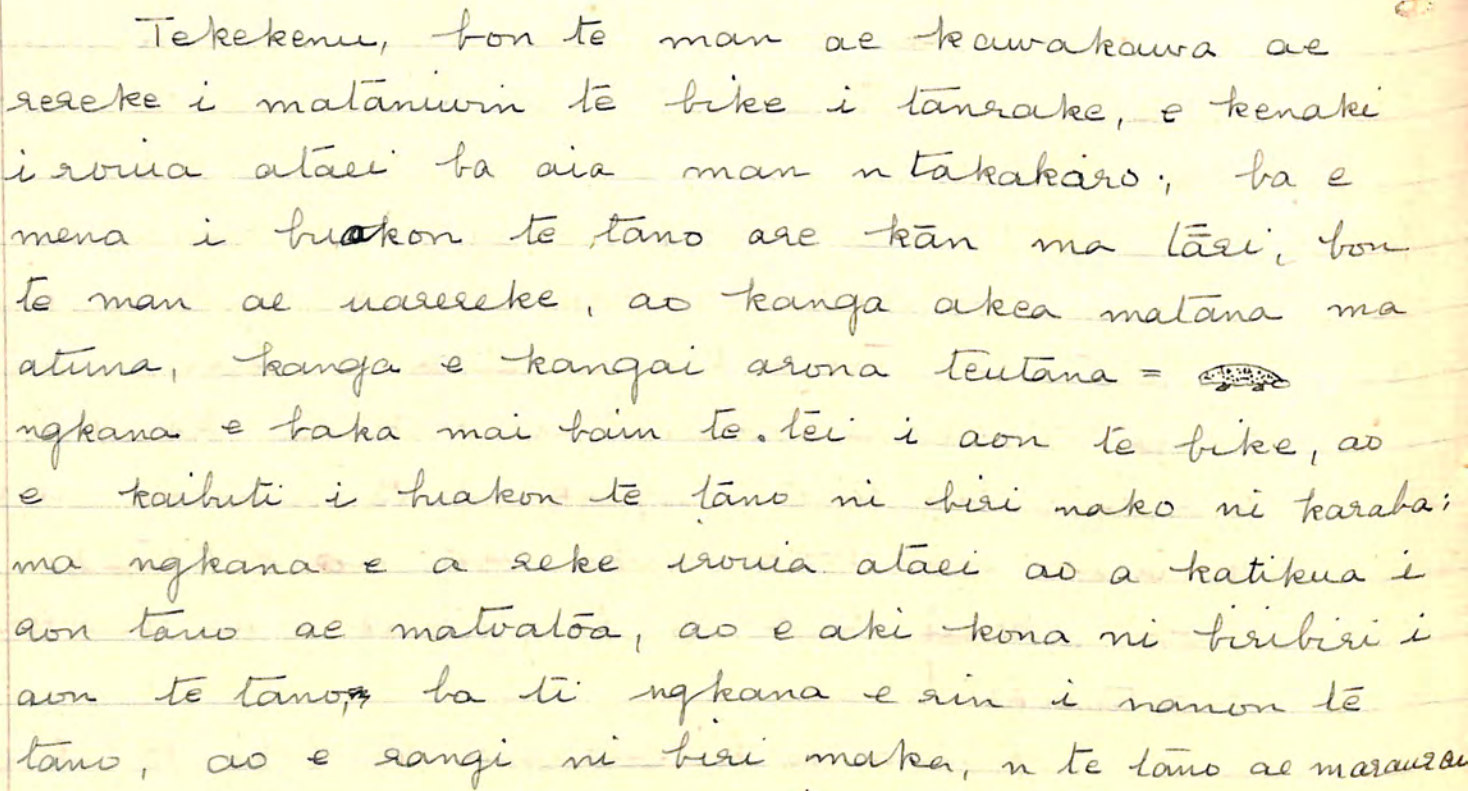 Tekekenu, bon te man ae kawakawa ae
rereke i matāniwin te bike i tānrake, e kenaki
i rouia ataei ba aia man n takakāro; ba e
mena i buakon te tano are kān ma tāri, bon
te man ae uarereke, ao kanga akea matāna ma
atuna, kanga e kangai arona teutana =
ngkana e baka mai bain te tei i aon te bike, ao
e kaibuti i buakon te tāno ni biri nako ni karaba;
ma ngkana e a reke irouia ataei ao a katikua i
aon tāno ae matoatōa, ao e aki kona ni biribiri i
aon te tano, ba ti ngkana e rin i nanon te
tāno, ao e rangi ni biri maka, n te tāno ae maraurau